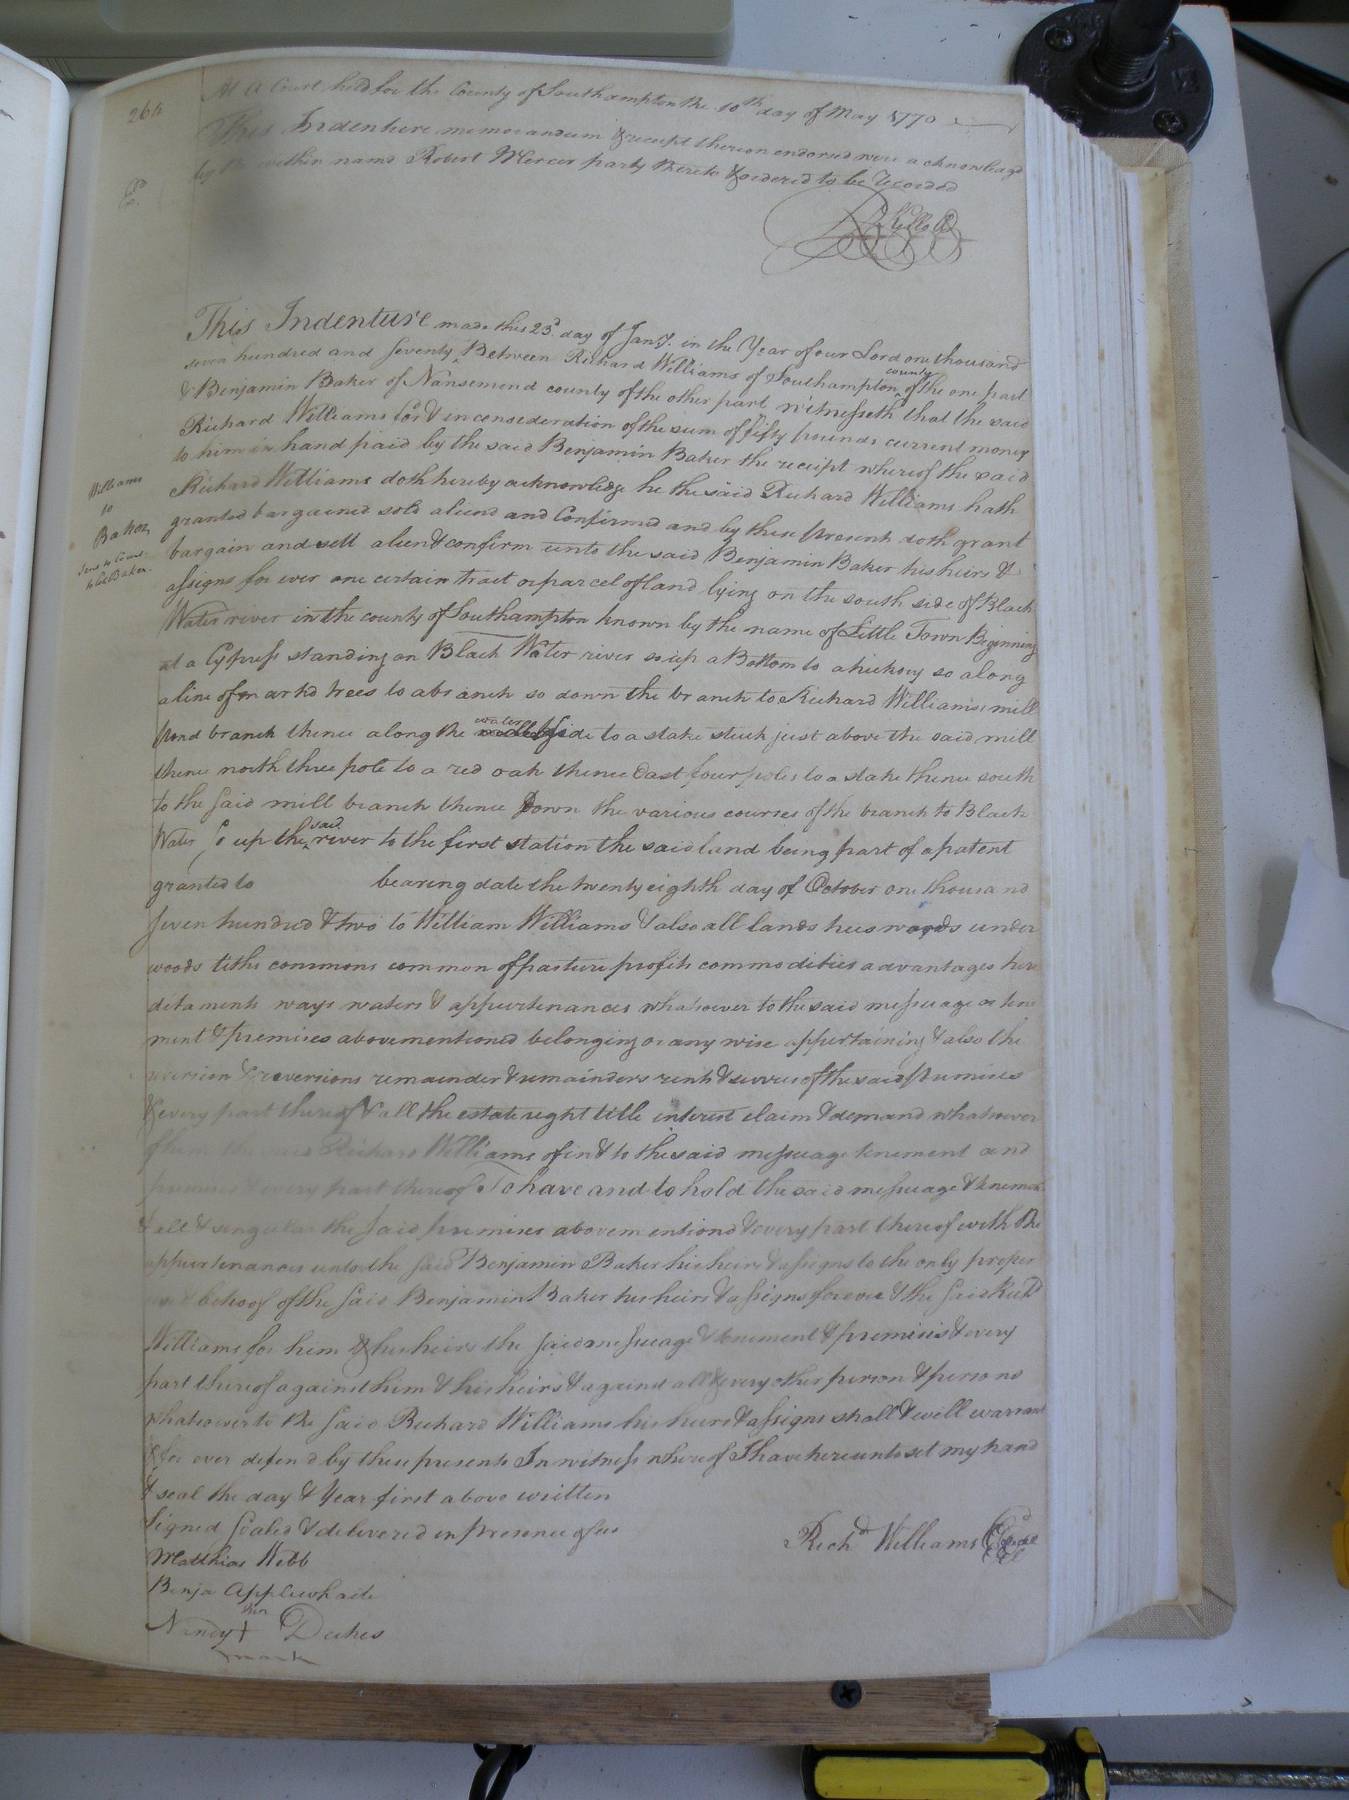 264
At A Court held for the County of Southampton the 10th day of May 1770
This Indenture memorandum & receipt thereon endorsed were acknowledged
by the within named Robert Mercer party thereto & ordered to be recorded
This Indenture made this 23d. day of Jany. in the Year of our Lord one thousand
seven hundred and seventy Between Richard Williams of Southampton county of the one part
& Benjamin Baker of Nansemond county of the other part witnesseth that the said
Richard Williams for & in consideration of the sum of fifty pounds current money
to him in hand paid by the said Benjamin Baker the receipt whereof the said
Richard Williams doth hereby acknowledge he the said Richard Williams hath
Williams
to
Baker
granted bargained sold aliend and Confirmd and by these presents doth grant
bargain and sell alien & confirm unto the said Benjamin Baker his heirs &
assigns for ever one certain tract or parcel of land lying on the south side of Black
Water river in the county of Southampton known by the name of Little Town Beginning
at a Cypress standing on Black Water river so up a Bottom to a hickory so along
a line of markd trees to a branch so down the branch to Richard Williams mill
pond branch thence along the water side to a stake stuck just above the said mill
thence north three pole to a red oak thence East four poles to a stake thence south
to the said mill branch thence Down the various courses of the branch to Black
Water so up the said river to the first station the said land being part of a patent
granted to bearing date the twenty eighth day of October one thousand
seven hundred & two to William Williams & also all lands trees woods under
woods tiths commons common of pasture profits commodities advantages here
ditaments ways waters & appurtenances whatsoever to the said messuage or tene
ment & premises abovementioned belonging or any wise appertaining & also the
reversion & reversions remainder & remainders rents & services of the said premises
& every part thereof & all the estate right title interest claim & demand whatsoever
of him the said Richard Williams of in & to the said messuage tenement and
premises & every part thereof To have and to hold the said messuage & tenement
& all & singular the said premises abovementiond & every part thereof with the
appurtenances unto the said Benjamin Baker his heirs & assigns to the only proper
use & behoof of the said Benjamin Baker his heirs & assigns forever & the said Richd
Williams for him & his heirs the said messuage & tenement & premises & every
part thereof against him & his heirs & against all & every other person & persons
whatsoever to the said Richard Williams his heirs & assigns shall & will warrant
& for ever defend by these presents In witness whereof I have hereunto set my hand
& seal the day & Year first above written
Signed Sealed & delivered in presence of us
Richd Williams Seal
Matthias Webb
Benja Applewhaite
his
Nandy + Dukes
mark